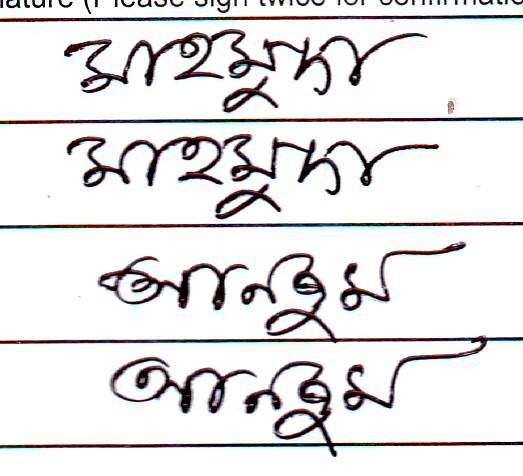 nature (Please sign twice for confirmation
মাহমুদা
মাহমুদা
আনজুম
আনজুম